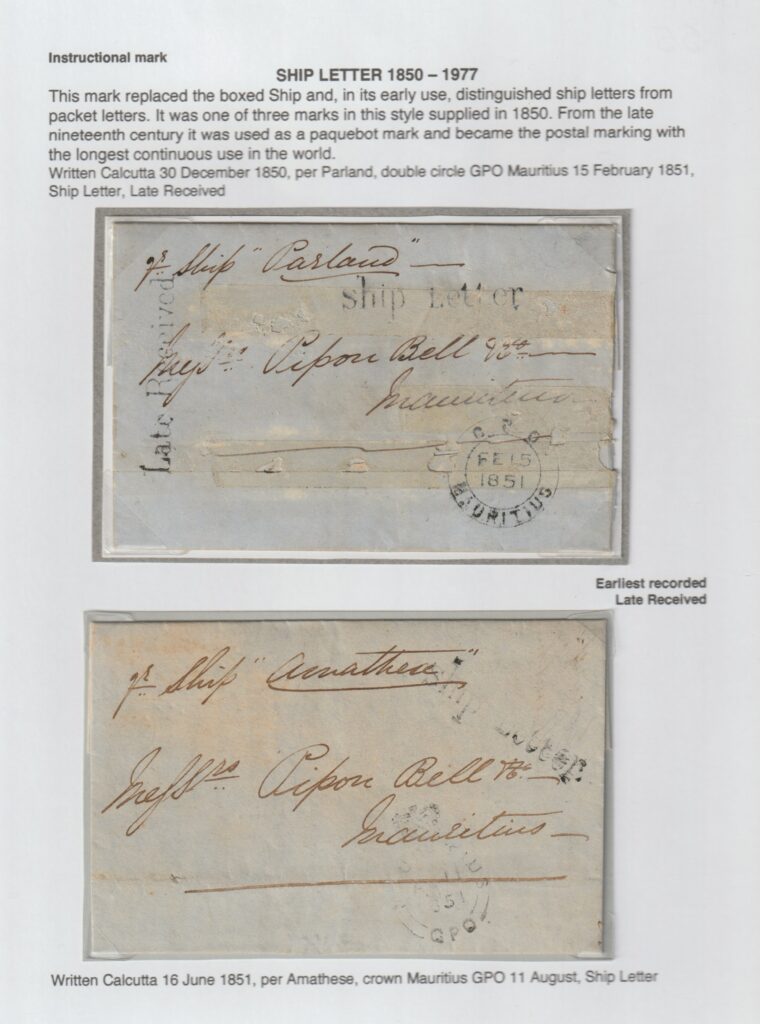 Instructional mark
SHIP LETTER 1850 – 1977
This mark replaced the boxed Ship and, in its early use, distinguished ship letters from
packet letters. It was one of three marks in this style supplied in 1850. From the late
nineteenth century it was used as a paquebot mark and became the postal marking with
the longest continuous use in the world.
Written Calcutta 30 December 1850, per Parland, double circle GPO Mauritius 15 February 1851,
Ship Letter, Late Received
pr Ship "Parland"
Ship Letter
Late Received
Messrs Pipon Bell & Co
Mauritius
G.P.O
FE 15
1851
MAURITIUS
Earliest recorded
Late Received
pr Ship "Amathese"
Ship Letter
Messrs Pipon Bell & Co
Mauritius
GPO
Written Calcutta 16 June 1851, per Amathese, crown Mauritius GPO 11 August, Ship Letter